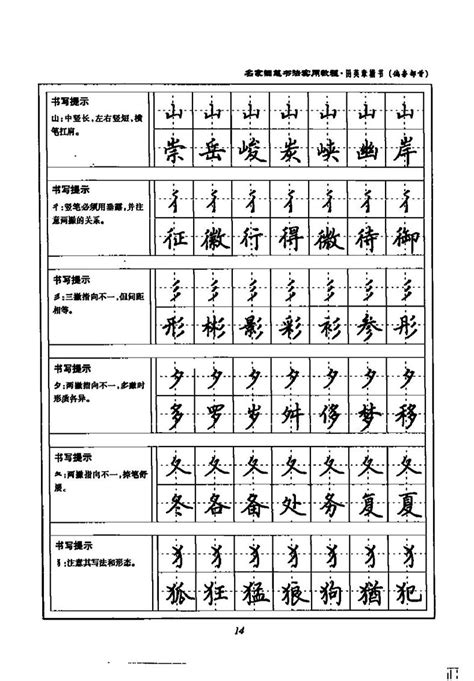 名家钢笔书法实用教程·田英章楷书(偏旁部首)
书写提示
山:中竖长,左右竖短,横
笔扛肩。
山山山山山山山
崇岳峻炭峡幽岸
书写提示
彳:竖笔必须用垂露,并注
意两撇的关系。
彳彳彳彳彳彳彳
征徽行得微待御
书写提示
彡:三撇指向不一,但间距
相等。
彡彡彡彡彡彡彡
形彬影彩衫参彤
书写提示
夕:两撇指向不一,多撇时
形质各异。
夕夕夕夕夕夕夕
多罗岁舛侈梦移
书写提示
夂:两撇指向不一,捺笔舒
展。
夂夂夂夂夂夂夂
冬各备处务复夏
书写提示
犭:注意其写法和形态。
犭犭犭犭犭犭犭
狐狂猛狼狗猶犯
14